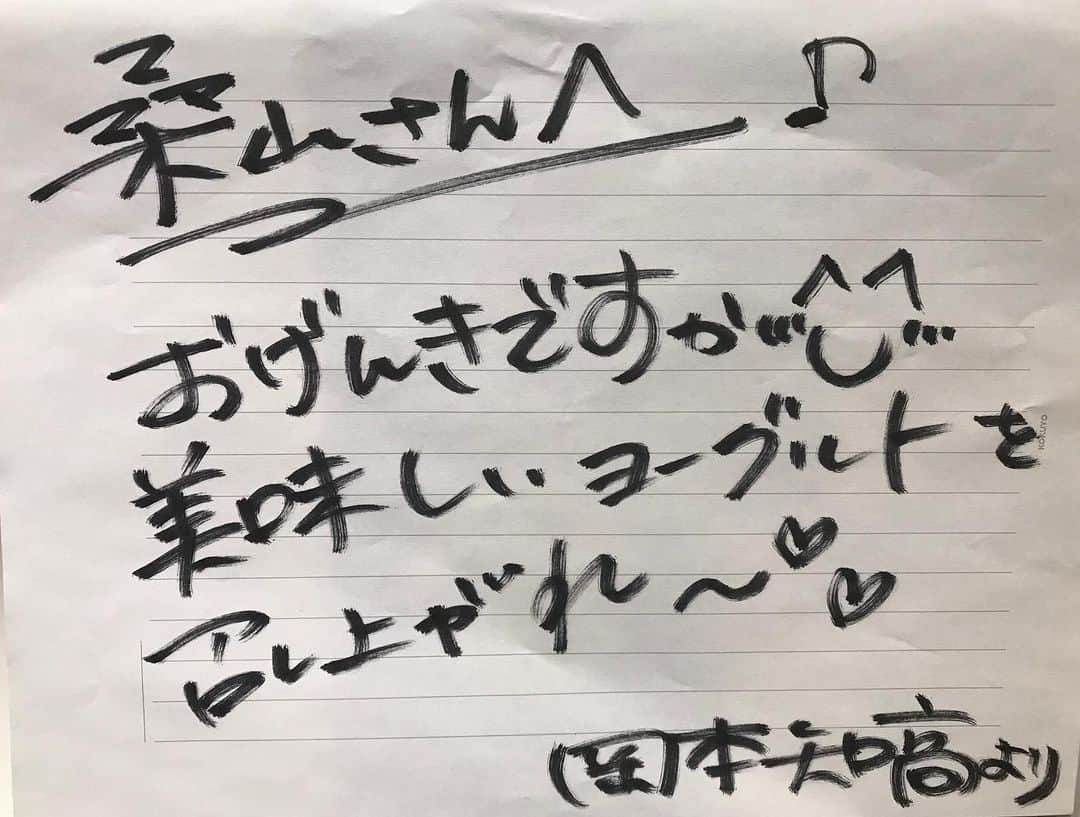 桑山さんへ♪
おげんきですか
美味しいヨーグルトを
召し上がれ〜♡♡
岡本知高より
KOKUYO